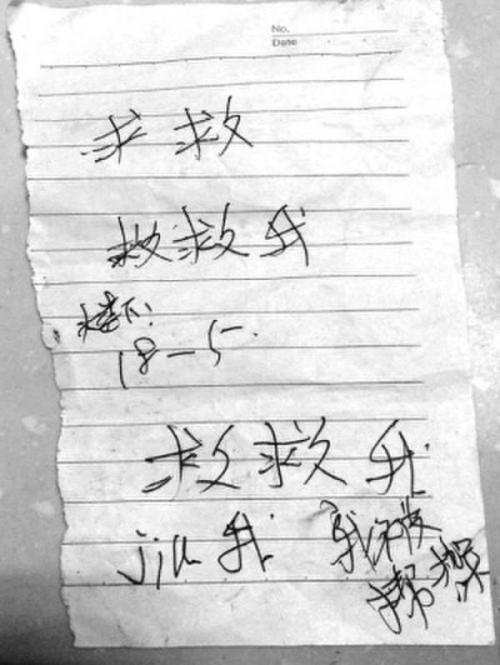 No.
Date
求 救
救救我
楼下:
18-5.
救救我
jiu 我 我被
绑架